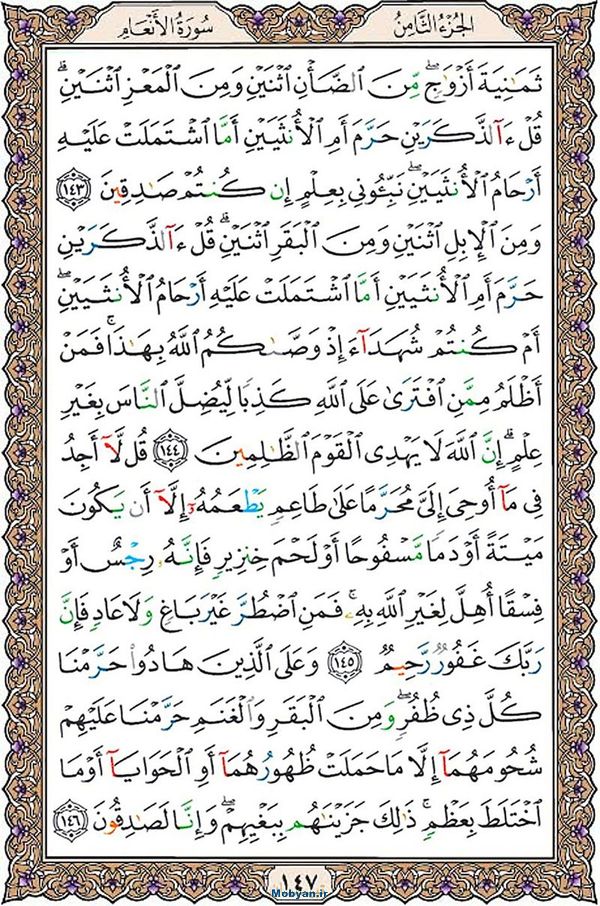 الجُزْءُ الثَّامِنُ
سُورَةُ الأَنْعَامِ
ثَمَٰنِيَةَ أَزْوَٰجٍ ۖ مِّنَ ٱلضَّأْنِ ٱثْنَيْنِ وَمِنَ ٱلْمَعْزِ ٱثْنَيْنِ ۗ
قُلْ ءَآلذَّكَرَيْنِ حَرَّمَ أَمِ ٱلْأُنثَيَيْنِ أَمَّا ٱشْتَمَلَتْ عَلَيْهِ
أَرْحَامُ ٱلْأُنثَيَيْنِ ۖ نَبِّـُٔونِى بِعِلْمٍ إِن كُنتُمْ صَٰدِقِينَ ١٤٣
وَمِنَ ٱلْإِبِلِ ٱثْنَيْنِ وَمِنَ ٱلْبَقَرِ ٱثْنَيْنِ ۗ قُلْ ءَآلذَّكَرَيْنِ
حَرَّمَ أَمِ ٱلْأُنثَيَيْنِ أَمَّا ٱشْتَمَلَتْ عَلَيْهِ أَرْحَامُ ٱلْأُنثَيَيْنِ ۖ
أَمْ كُنتُمْ شُهَدَآءَ إِذْ وَصَّىٰكُمُ ٱللَّهُ بِهَٰذَا ۚ فَمَنْ
أَظْلَمُ مِمَّنِ ٱفْتَرَىٰ عَلَى ٱللَّهِ كَذِبًا لِّيُضِلَّ ٱلنَّاسَ بِغَيْرِ
عِلْمٍ ۗ إِنَّ ٱللَّهَ لَا يَهْدِى ٱلْقَوْمَ ٱلظَّٰلِمِينَ ١٤٤ قُل لَّآ أَجِدُ
فِى مَآ أُوحِىَ إِلَىَّ مُحَرَّمًا عَلَىٰ طَاعِمٍ يَطْعَمُهُۥٓ إِلَّآ أَن يَكُونَ
مَيْتَةً أَوْ دَمًا مَّسْفُوحًا أَوْ لَحْمَ خِنزِيرٍ فَإِنَّهُۥ رِجْسٌ أَوْ
فِسْقًا أُهِلَّ لِغَيْرِ ٱللَّهِ بِهِۦ ۚ فَمَنِ ٱضْطُرَّ غَيْرَ بَاغٍ وَلَا عَادٍ فَإِنَّ
رَبَّكَ غَفُورٌ رَّحِيمٌ ١٤٥ وَعَلَى ٱلَّذِينَ هَادُوا۟ حَرَّمْنَا
كُلَّ ذِى ظُفُرٍ ۖ وَمِنَ ٱلْبَقَرِ وَٱلْغَنَمِ حَرَّمْنَا عَلَيْهِمْ
شُحُومَهُمَآ إِلَّا مَا حَمَلَتْ ظُهُورُهُمَآ أَوِ ٱلْحَوَايَآ أَوْ مَا
ٱخْتَلَطَ بِعَظْمٍ ۚ ذَٰلِكَ جَزَيْنَٰهُم بِبَغْيِهِمْ ۖ وَإِنَّا لَصَٰدِقُونَ ١٤٦
١٤٧
Mobyan.ir